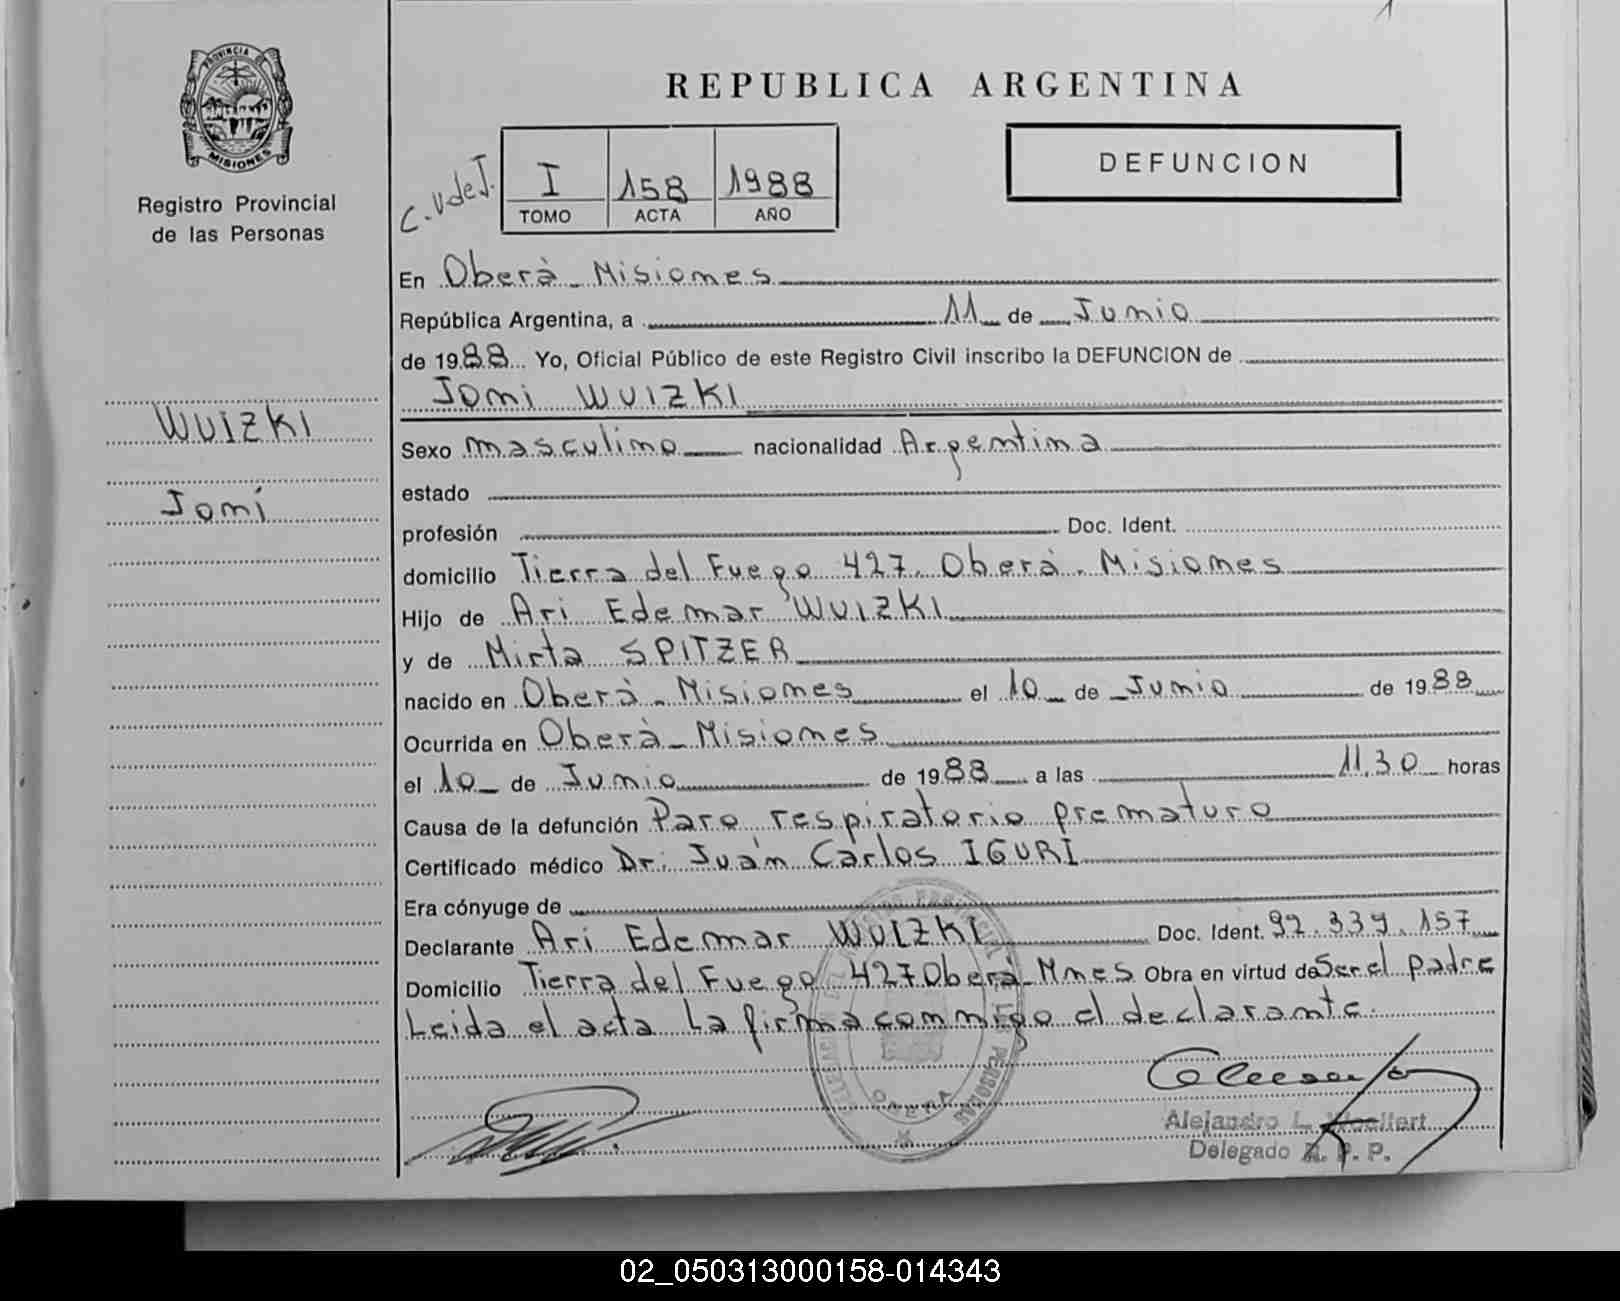 PROVINCIA DE
MISIONES
Registro Provincial
de las Personas
WUIZKI
Jomi
REPUBLICA ARGENTINA
DEFUNCION
C.V.deJ.
I 158 1988
TOMO ACTA AÑO
En Oberà - Misiones
República Argentina, a 11 de Junio
de 1988 Yo, Oficial Público de este Registro Civil inscribo la DEFUNCION de
Jomi WUIZKI
Sexo masculino nacionalidad Argentina
estado
profesión Doc. Ident.
domicilio Tierra del Fuego 427. Oberà. Misiones
Hijo de Ari Edemar WUIZKI
y de Mirta SPITZER
nacido en Oberà - Misiones el 10 de Junio de 1988
Ocurrida en Oberà - Misiones
el 10 de Junio de 1988 a las 11,30 horas
Causa de la defunción Paro respiratorio prematuro
Certificado médico Dr. Juan Carlos IGURI
Era cónyuge de
Declarante Ari Edemar WUIZKI Doc. Ident. 92.339.157
Domicilio Tierra del Fuego 427 Oberà - Mnes Obra en virtud de Ser el padre
Leida el acta la firma conmigo el declarante.
Alejandro L.
Delegado R. P. P.
02_050313000158-014343